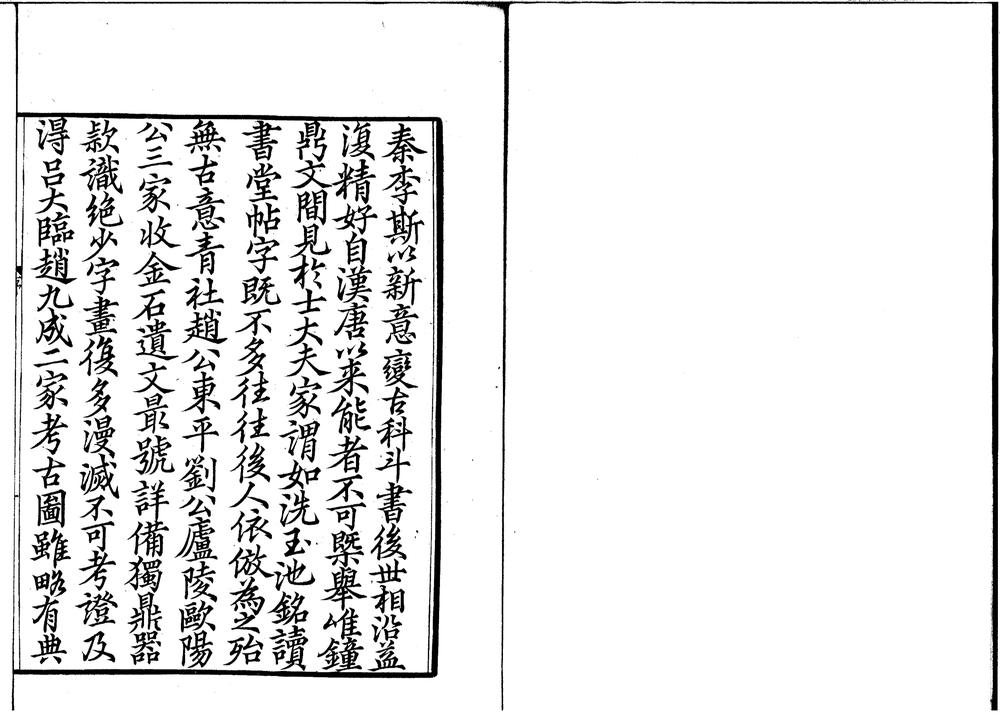 秦李斯以新意變古科斗書後世相沿益
復精好自漢唐以来能者不可槩舉唯鐘
鼎文間見於士大夫家謂如洗玉池銘讀
書堂帖字既不多往往後人依倣為之殆
無古意青社趙公東平劉公廬陵歐陽
公三家收金石遺文最號詳備獨鼎器
款識絶少字畫復多漫滅不可考證及
得呂大臨趙九成二家考古圖雖略有典